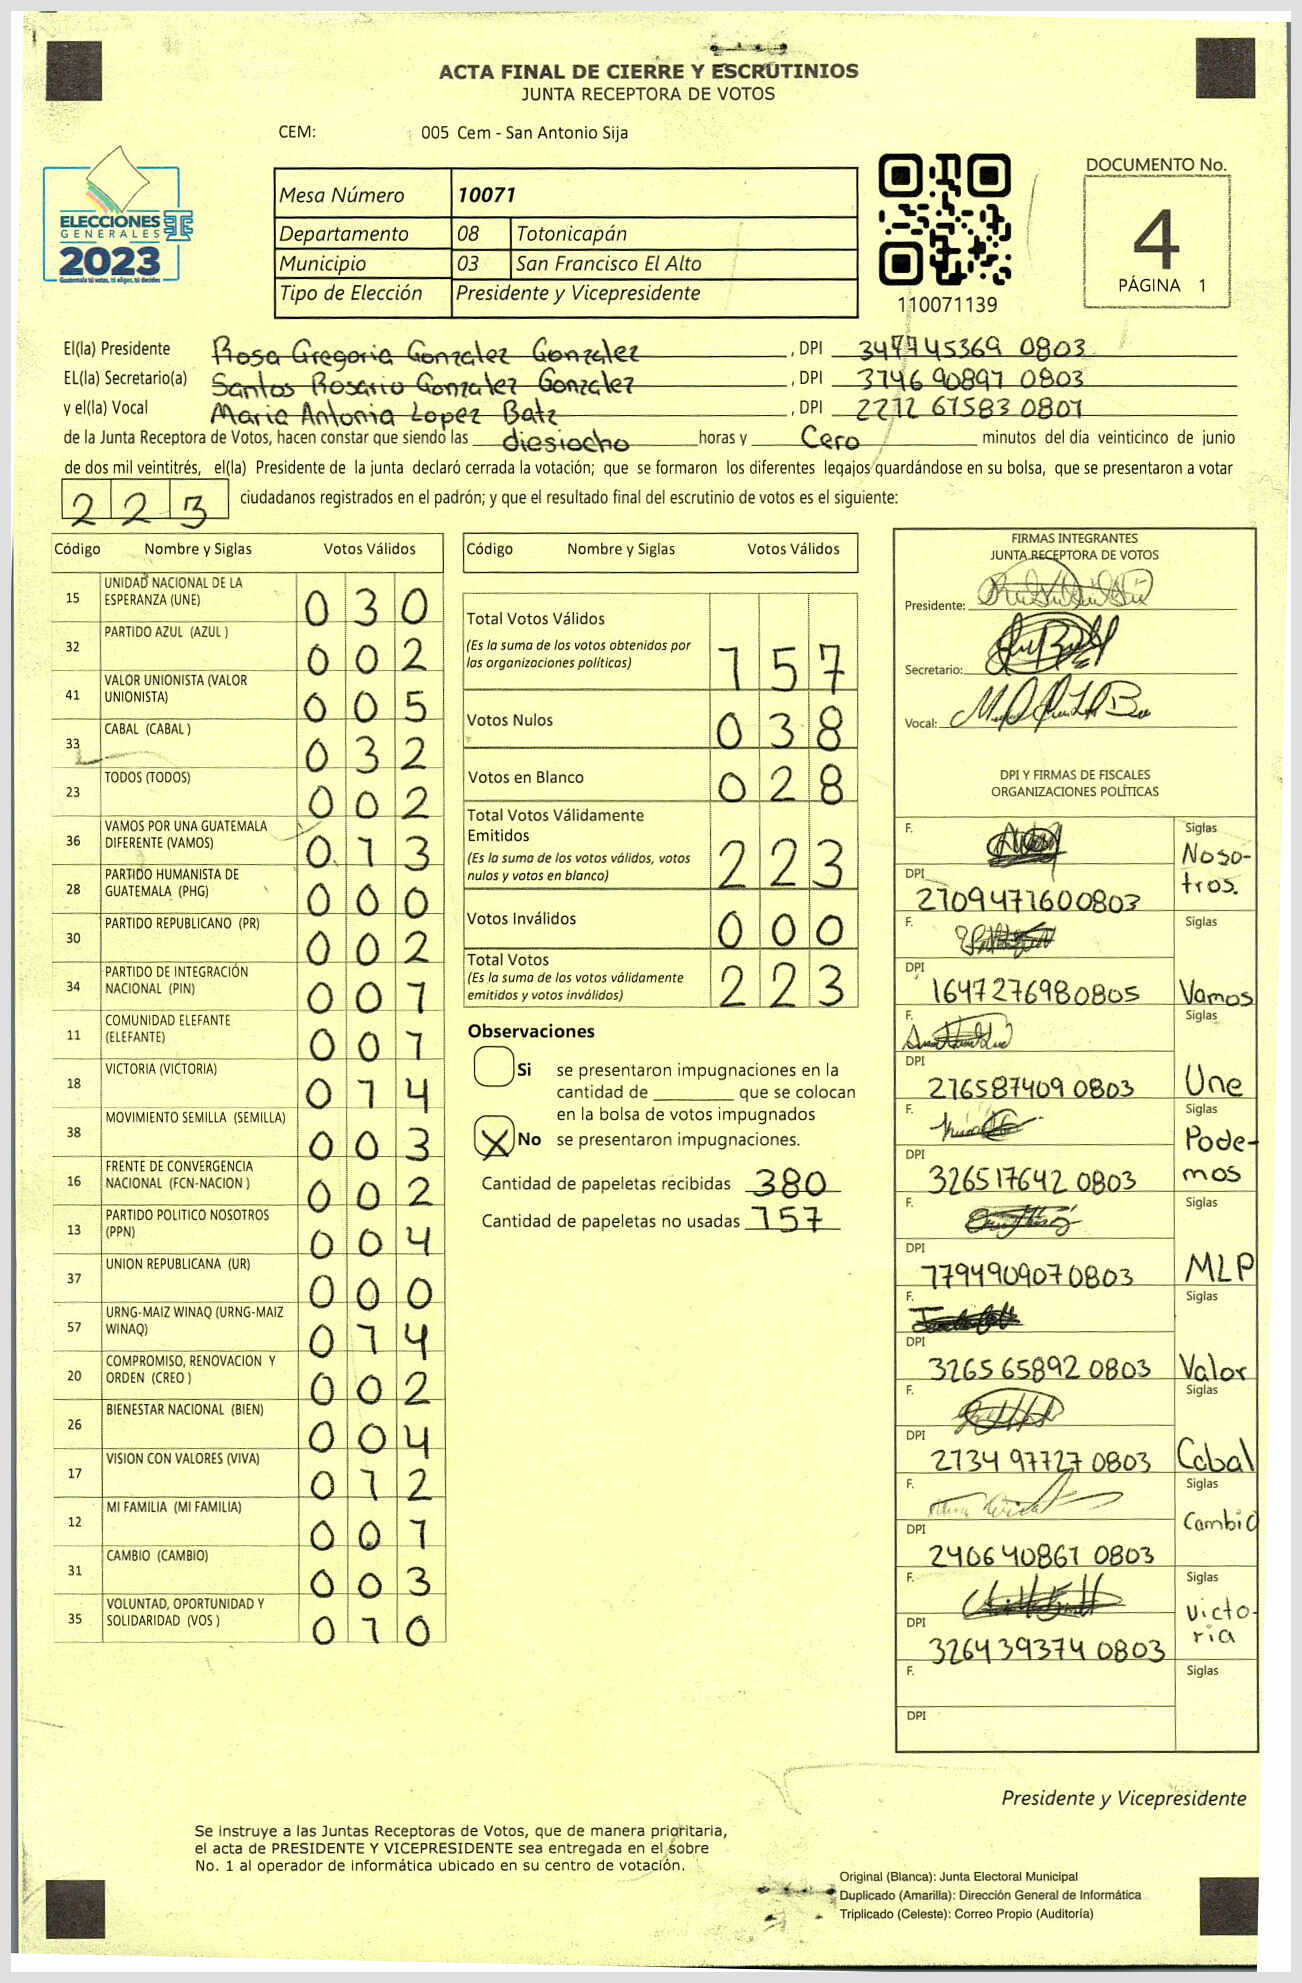 ACTA FINAL DE CIERRE Y ESCRUTINIOS
JUNTA RECEPTORA DE VOTOS
CEM: 005 Cem - San Antonio Sija
ELECCIONES
GENERALES
2023
Guatemala tú votas, tú eliges, tú decides
Mesa Número 10071
Departamento 08 Totonicapán
Municipio 03 San Francisco El Alto
Tipo de Elección Presidente y Vicepresidente
110071139
DOCUMENTO No.
4
PÁGINA 1
El(la) Presidente Rosa Gregoria Gonzalez Gonzalez , DPI 347745369 0803
EL(la) Secretario(a) Santos Rosario Gonzalez Gonzalez , DPI 3746 90897 0803
y el(la) Vocal Maria Antonia Lopez Batz , DPI 2212 67583 0801
de la Junta Receptora de Votos, hacen constar que siendo las diesiocho horas y Cero minutos del día veinticinco de junio
de dos mil veintitrés, el(la) Presidente de la junta declaró cerrada la votación; que se formaron los diferentes legajos guardándose en su bolsa, que se presentaron a votar
223 ciudadanos registrados en el padrón; y que el resultado final del escrutinio de votos es el siguiente:
Código Nombre y Siglas Votos Válidos
15 UNIDAD NACIONAL DE LA ESPERANZA (UNE) 030
32 PARTIDO AZUL (AZUL ) 002
41 VALOR UNIONISTA (VALOR UNIONISTA) 005
33 CABAL (CABAL ) 032
23 TODOS (TODOS) 002
36 VAMOS POR UNA GUATEMALA DIFERENTE (VAMOS) 013
28 PARTIDO HUMANISTA DE GUATEMALA (PHG) 000
30 PARTIDO REPUBLICANO (PR) 002
34 PARTIDO DE INTEGRACIÓN NACIONAL (PIN) 001
11 COMUNIDAD ELEFANTE (ELEFANTE) 001
18 VICTORIA (VICTORIA) 014
38 MOVIMIENTO SEMILLA (SEMILLA) 003
16 FRENTE DE CONVERGENCIA NACIONAL (FCN-NACION ) 002
13 PARTIDO POLITICO NOSOTROS (PPN) 004
37 UNION REPUBLICANA (UR) 000
57 URNG-MAIZ WINAQ (URNG-MAIZ WINAQ) 014
20 COMPROMISO, RENOVACION Y ORDEN (CREO ) 002
26 BIENESTAR NACIONAL (BIEN) 004
17 VISION CON VALORES (VIVA) 012
12 MI FAMILIA (MI FAMILIA) 001
31 CAMBIO (CAMBIO) 003
35 VOLUNTAD, OPORTUNIDAD Y SOLIDARIDAD (VOS ) 010
Código Nombre y Siglas Votos Válidos
Total Votos Válidos
(Es la suma de los votos obtenidos por
las organizaciones políticas) 157
Votos Nulos 038
Votos en Blanco 028
Total Votos Válidamente
Emitidos
(Es la suma de los votos válidos, votos
nulos y votos en blanco) 223
Votos Inválidos 000
Total Votos
(Es la suma de los votos válidamente
emitidos y votos inválidos) 223
Observaciones
Si se presentaron impugnaciones en la
cantidad de ________ que se colocan
en la bolsa de votos impugnados
X No se presentaron impugnaciones.
Cantidad de papeletas recibidas 380
Cantidad de papeletas no usadas 157
FIRMAS INTEGRANTES
JUNTA RECEPTORA DE VOTOS
Presidente:
Secretario:
Vocal:
DPI Y FIRMAS DE FISCALES
ORGANIZACIONES POLÍTICAS
F. Siglas Noso-
tros.
DPI 2709471600803
F. Siglas
DPI 1647276980805 Vamos
F. Siglas
DPI 276587409 0803 Une
F. Siglas Pode-
mos
DPI 326517642 0803
F. Siglas
DPI 1794909070803 MLP
F. Siglas
DPI 3265 65892 0803 Valor
F. Siglas
DPI 2734 97727 0803 Cabal
F. Siglas Cambio
DPI 240640861 0803
F. Siglas victo-
ria
DPI 326439374 0803
F. Siglas
DPI
Presidente y Vicepresidente
Se instruye a las Juntas Receptoras de Votos, que de manera prioritaria,
el acta de PRESIDENTE Y VICEPRESIDENTE sea entregada en el sobre
No. 1 al operador de informática ubicado en su centro de votación.
Original (Blanca): Junta Electoral Municipal
Duplicado (Amarilla): Dirección General de Informática
Triplicado (Celeste): Correo Propio (Auditoría)